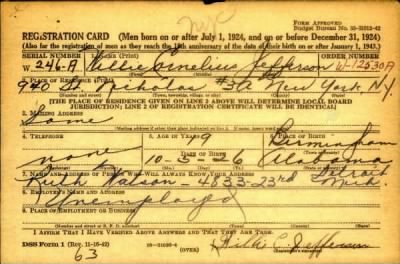 NYC
FORM APPROVED
Budget Bureau No. 33-R012-42
REGISTRATION CARD (Men born on or after July 1, 1924, and on or before December 31, 1924)
(Also for the registration of men as they reach the 18th anniversary of the date of their birth on or after January 1, 1943.)
SERIAL NUMBER 1. NAME (Print) ORDER NUMBER
W 246-A Willie Cornelius Jefferson W-12630A
940 #3A New York, N.Y.
2. PLACE OF RESIDENCE (Print)
(Number and street) (Town, township, village, or city) (County) (State)
[THE PLACE OF RESIDENCE GIVEN ON LINE 2 ABOVE WILL DETERMINE LOCAL BOARD
JURISDICTION; LINE 2 OF REGISTRATION CERTIFICATE WILL BE IDENTICAL]
3. MAILING ADDRESS
Same
4. TELEPHONE 5. AGE IN YEARS 6. PLACE OF BIRTH
Birmingham
none DATE OF BIRTH
10-3-26 Alabama
7. NAME AND ADDRESS OF PERSON WHO WILL ALWAYS KNOW YOUR ADDRESS Detroit
Ruth Watson - 4833-23rd Mich.
8. EMPLOYER'S NAME AND ADDRESS
Unemployed
9. PLACE OF EMPLOYMENT OR BUSINESS
(Number and street or R. F. D. number) (Town) (County) (State)
I AFFIRM THAT I HAVE VERIFIED ABOVE ANSWERS AND THAT THEY ARE TRUE.
DSS Form 1 (Rev. 11-16-42) (OVER) Willie C. Jefferson
63